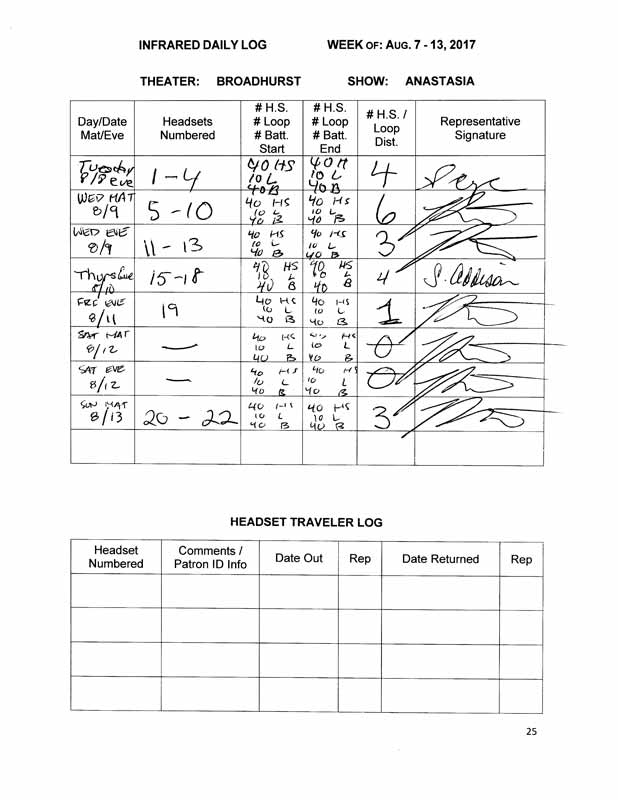 INFRARED DAILY LOG WEEK OF: AUG. 7 - 13, 2017
THEATER: BROADHURST SHOW: ANASTASIA
Day/Date Mat/Eve
Headsets Numbered
# H.S. # Loop # Batt. Start
# H.S. # Loop # Batt. End
# H.S. / Loop Dist.
Representative Signature
Tuesday 8/8 eve
1-4
40 HS
10 L
40 B
40 H
10 L
40 B
4
WED MAT 8/9
5-10
40 HS
10 L
40 B
40 HS
10 L
40 B
6
WED EVE 8/9
11-13
40 HS
10 L
40 B
40 HS
10 L
40 B
3
Thurs Eve 8/10
15-18
40 HS
10 L
40 B
40 HS
10 L
40 B
4
S. Addison
FRI EVE 8/11
19
40 HS
10 L
40 B
40 HS
10 L
40 B
1
SAT MAT 8/12
—
40 HS
10 L
40 B
HS
10 L
40 B
0
SAT EVE 8/12
—
40 HS
10 L
40 B
40 HS
10 L
40 B
0
SUN MAT 8/13
20 - 22
40 HS
10 L
40 B
40 HS
10 L
40 B
3
HEADSET TRAVELER LOG
Headset Numbered
Comments / Patron ID Info
Date Out
Rep
Date Returned
Rep
25